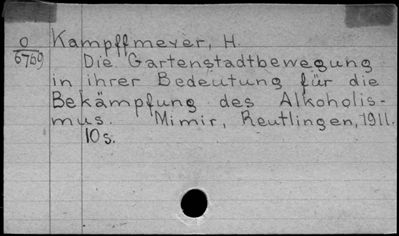 O
6769
Kampffmeyer, H.
Die Gartenstadtbewegung
in ihrer Bedeutung für die
Bekämpfung des Alkoholis-
mus. Mimir, Reutlingen, 1911.
10 s.